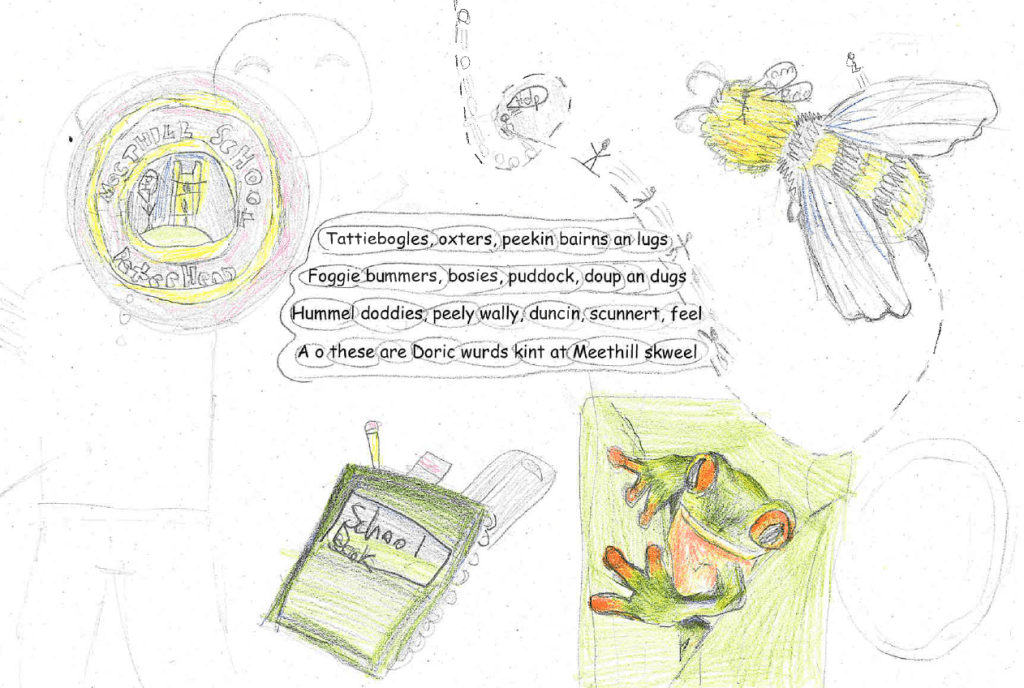 MEETHILL SCHOOL
PeterHead
Help
Tattiebogles, oxters, peekin bairns an lugs
Foggie bummers, bosies, puddock, doup an dugs
Hummel doddies, peely wally, duncin, scunnert, feel
A o these are Doric wurds kint at Meethill skweel
School
Book